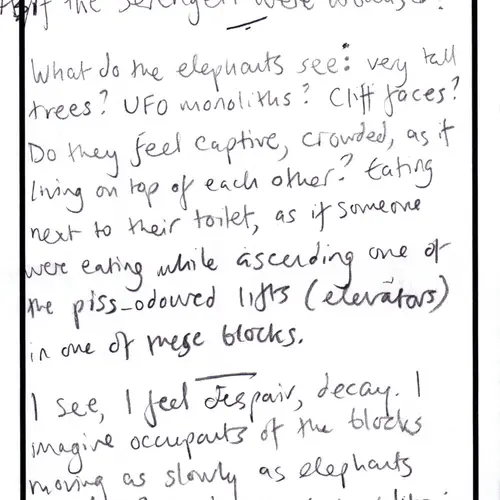 if the Serengeti were
What do the elephants see: very tall
trees? UFO monoliths? Cliff faces?
Do they feel captive, crowded, as if
living on top of each other? Eating
next to their toilet, as if someone
were eating while ascending one of
the piss-odoured lifts (elevators)
in one of these blocks.
I see, I feel despair, decay. I
imagine occupants of the blocks
moving as slowly as elephants